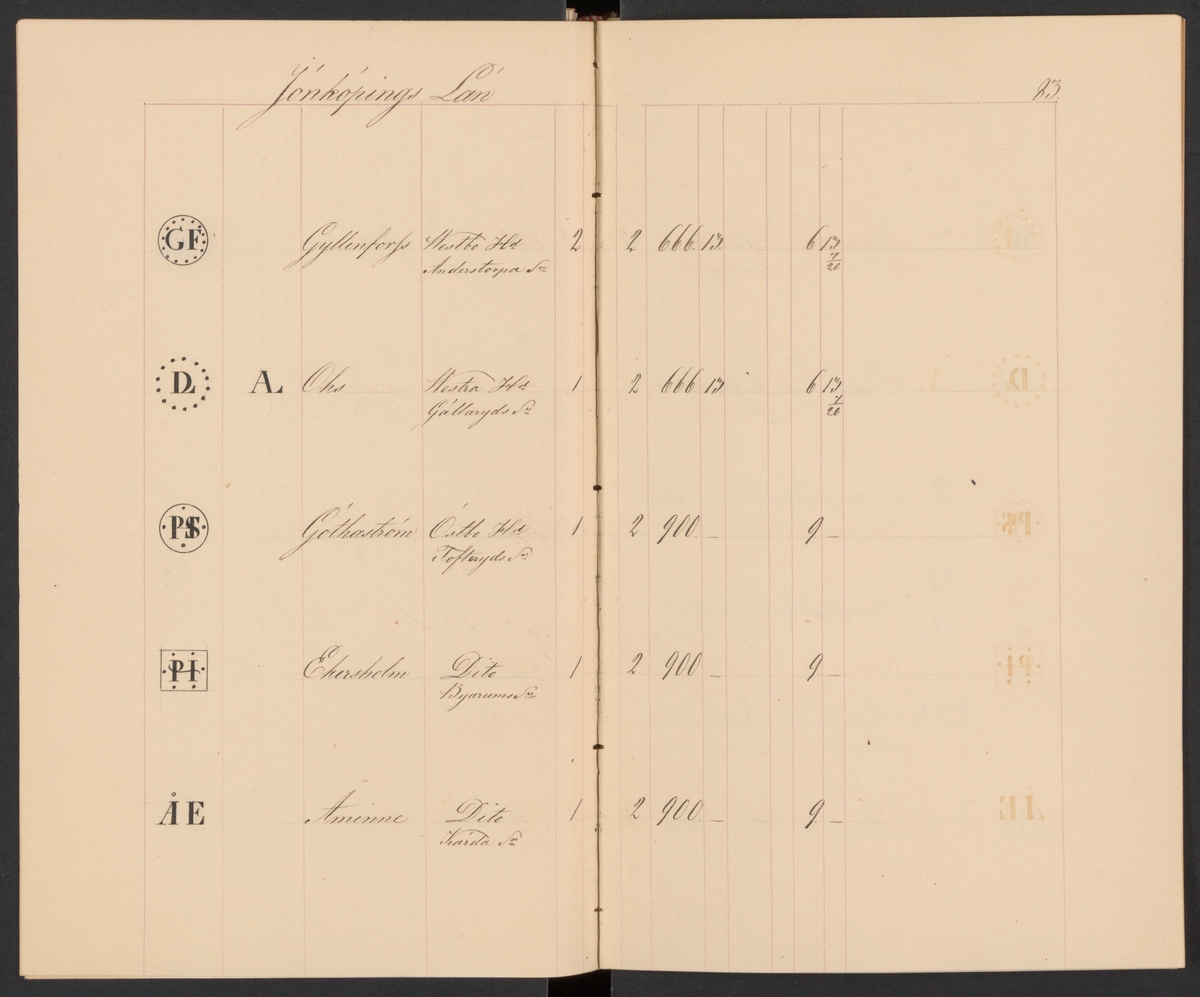 Jönköpings Län
83.
GF Gyllenforss Westbo Hd 2 2 666. 13. 6 13 7/20
Anderstorpa Sn
DL AL Ohs Westra Hd 1 2 666 13 6 13 7/20
Gällaryds Sn
PS Göthaström Östbo Hd 1 2 900. – 9 –
Tofteryds Sn
PI Ekersholm Dito 1 2 900 – 9 –
Byarums Sn
ÅE Åminne Dito 1 2 900 – 9 –
Kärda Sn